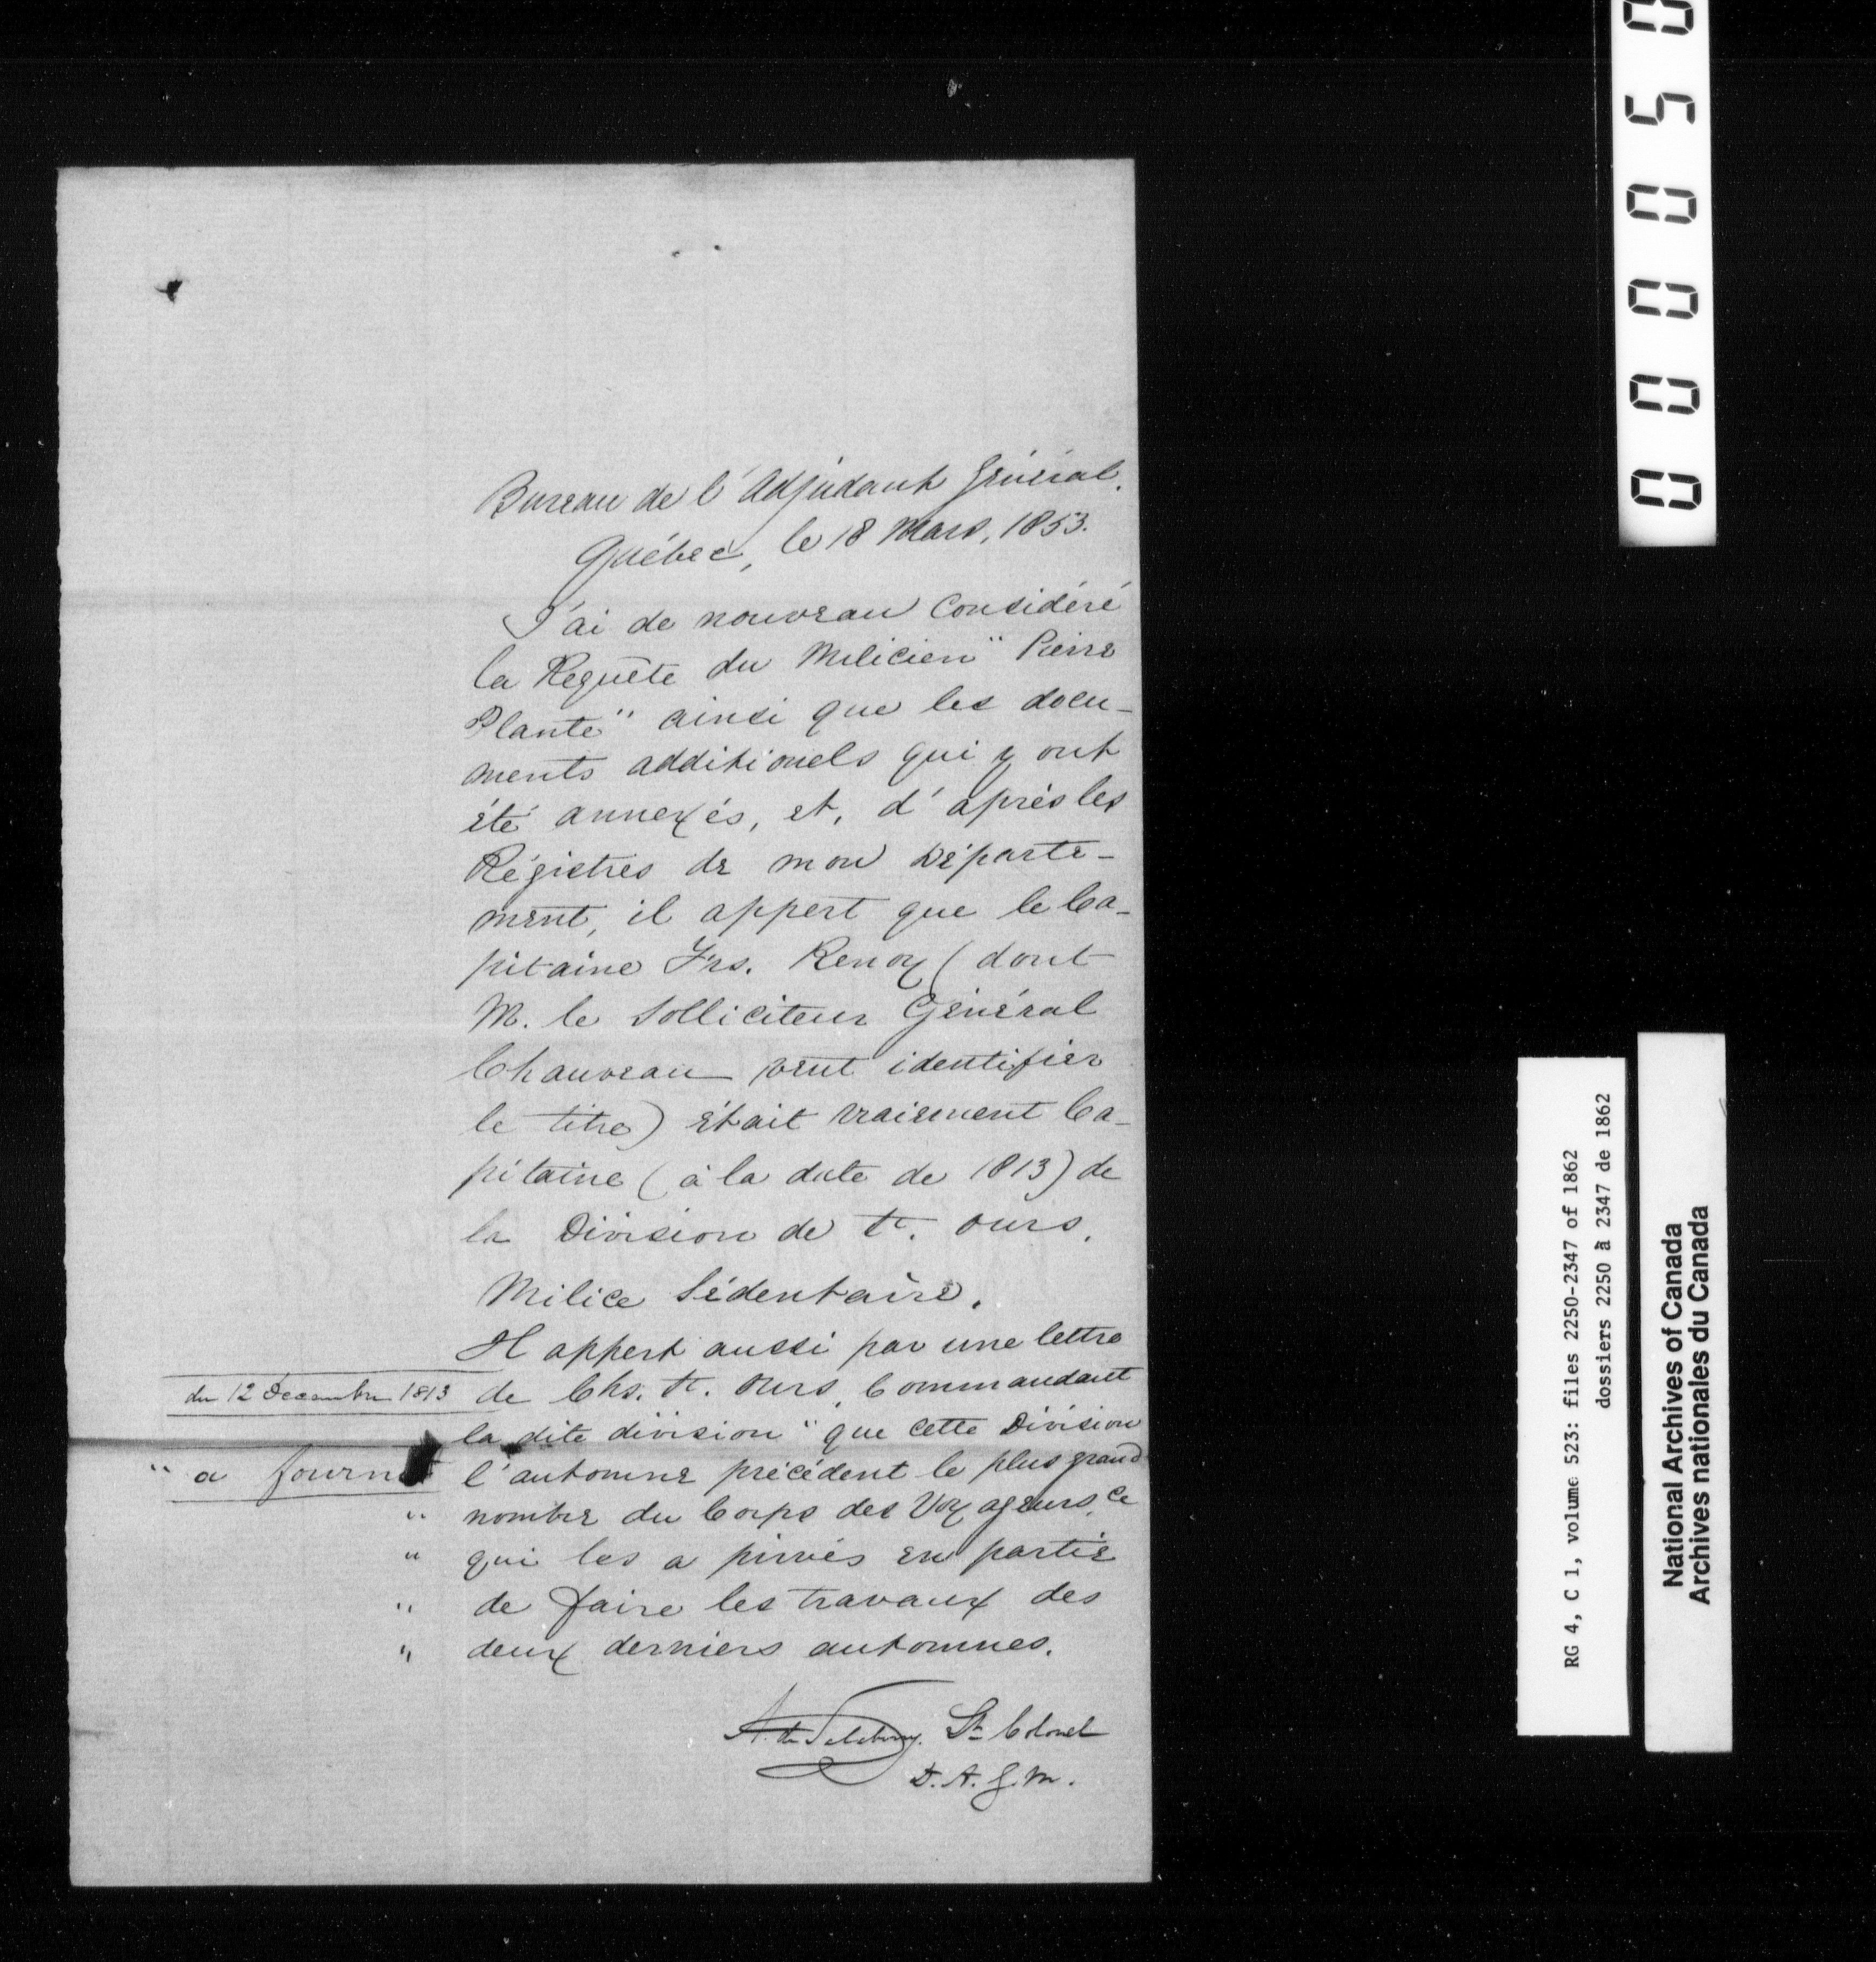 Bureau de l'Adjudant Général.
Québec, le 18 Mars, 1853.
J'ai de nouveau Considéré
la Requête du Milicien "Pierre
Plante" ainsi que les docu-
ments additionels qui y ont
été annexés, et, d'après les
Régistres de mon Départe-
ment, il appert que le Ca-
pitaine Frs. Renoy (dont
M. le Solliciteur Général
Chauveau peut identifier
le titre) était vraiement Ca-
pitaine (à la date de 1813) de
la Division de St. Ours.
Milice Sédentaire.
Il appert aussi par une lettre
du 12 Decembre 1813 de Chs. St. Ours, Commandant
la dite division "que cette Division
" a fourni l'automne précédent le plus grand
" nombre du Corps des Voyageurs, ce
" qui les a privés en partie
" de faire les travaux des
" deux derniers automnes.
A. de Salaberry. Lt Colonel
D. A. G. M.
0 0 0 0 5 0
RG 4, C 1, volume 523: files 2250-2347 of 1862
dossiers 2250 à 2347 de 1862
National Archives of Canada
Archives nationales du Canada